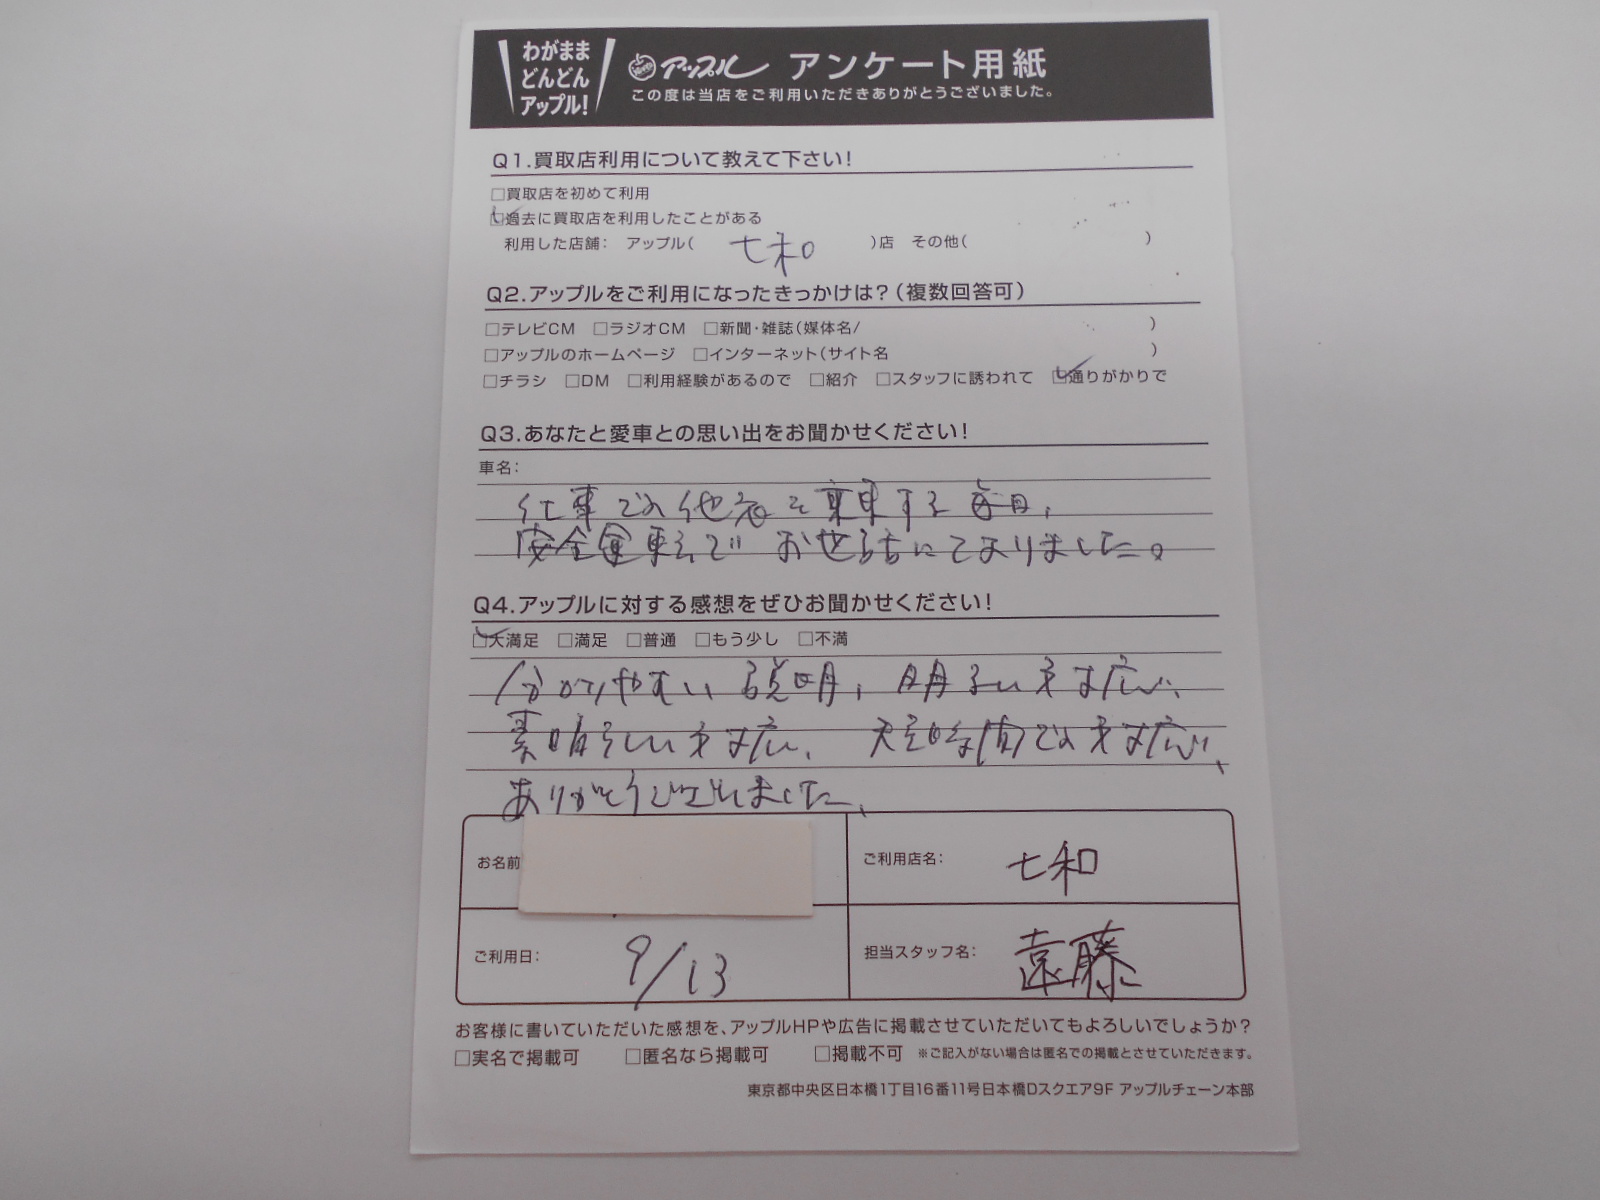 わがまま
どんどん
アップル!
アップル アンケート用紙
この度は当店をご利用いただきありがとうございました。
Q1.買取店利用について教えて下さい!
□買取店を初めて利用
□過去に買取店を利用したことがある
利用した店舗: アップル( 七和 )店 その他( )
Q2.アップルをご利用になったきっかけは?(複数回答可)
□テレビCM □ラジオCM □新聞・雑誌(媒体名/ )
□アップルのホームページ □インターネット(サイト名 )
□チラシ □DM □利用経験があるので □紹介 □スタッフに誘われて □通りがかりで
Q3.あなたと愛車との思い出をお聞かせください!
車名:
仕事での 乗車する毎日、
安全運転で お世話になりました。
Q4.アップルに対する感想をぜひお聞かせください!
□大満足 □満足 □普通 □もう少し □不満
分かりやすい説明、明るい対応、
素晴らしい対応、 での対応、
ありがとうございました、
お名前
ご利用店名: 七和
ご利用日: 9/13
担当スタッフ名: 遠藤
お客様に書いていただいた感想を、アップルHPや広告に掲載させていただいてもよろしいでしょうか?
□実名で掲載可 □匿名なら掲載可 □掲載不可 ※ご記入がない場合は匿名での掲載とさせていただきます。
東京都中央区日本橋1丁目16番11号日本橋Dスクエア9F アップルチェーン本部